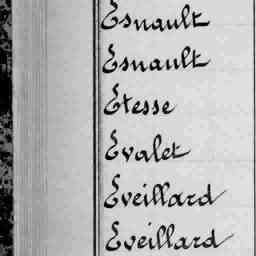 Esnault
Esnault
Etesse
Evalet
Eveillard
Eveillard